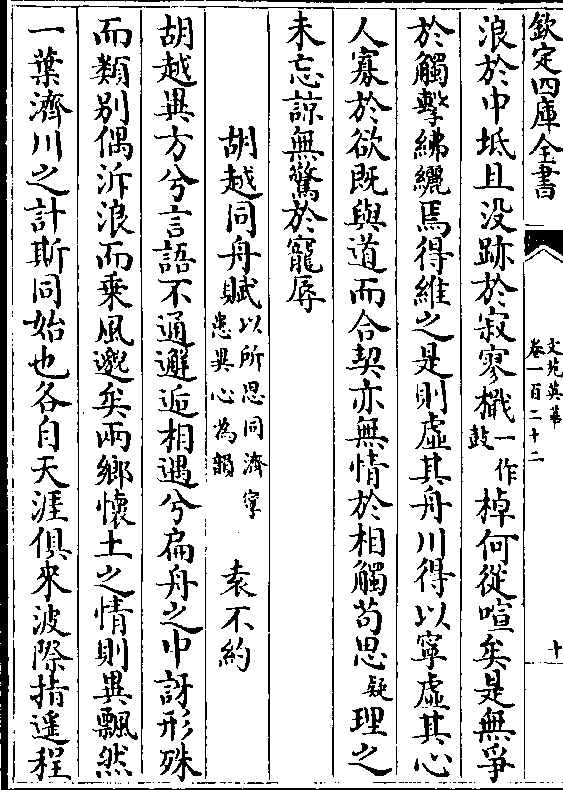 欽定四庫全書
文苑英華
卷一百二十二
十
浪於中坻且没跡於寂寥檝一作鼓棹何從喧矣是無爭
於觸擊紼纚焉得維之是則虛其舟川得以寧虛其心
人寡於欲既與道而合契亦無情於相觸苟思疑理之
未忘諒無驚於寵辱
胡越同舟賦以所思同濟寧患異心為韻 袁不約
胡越異方兮言語不通邂逅相遇兮扁舟之中訝形殊
而類別偶泝浪而乘風邈矣兩鄉懷土之情則異飄然
一葉濟川之計斯同始也各自天涯俱來波際指遥程